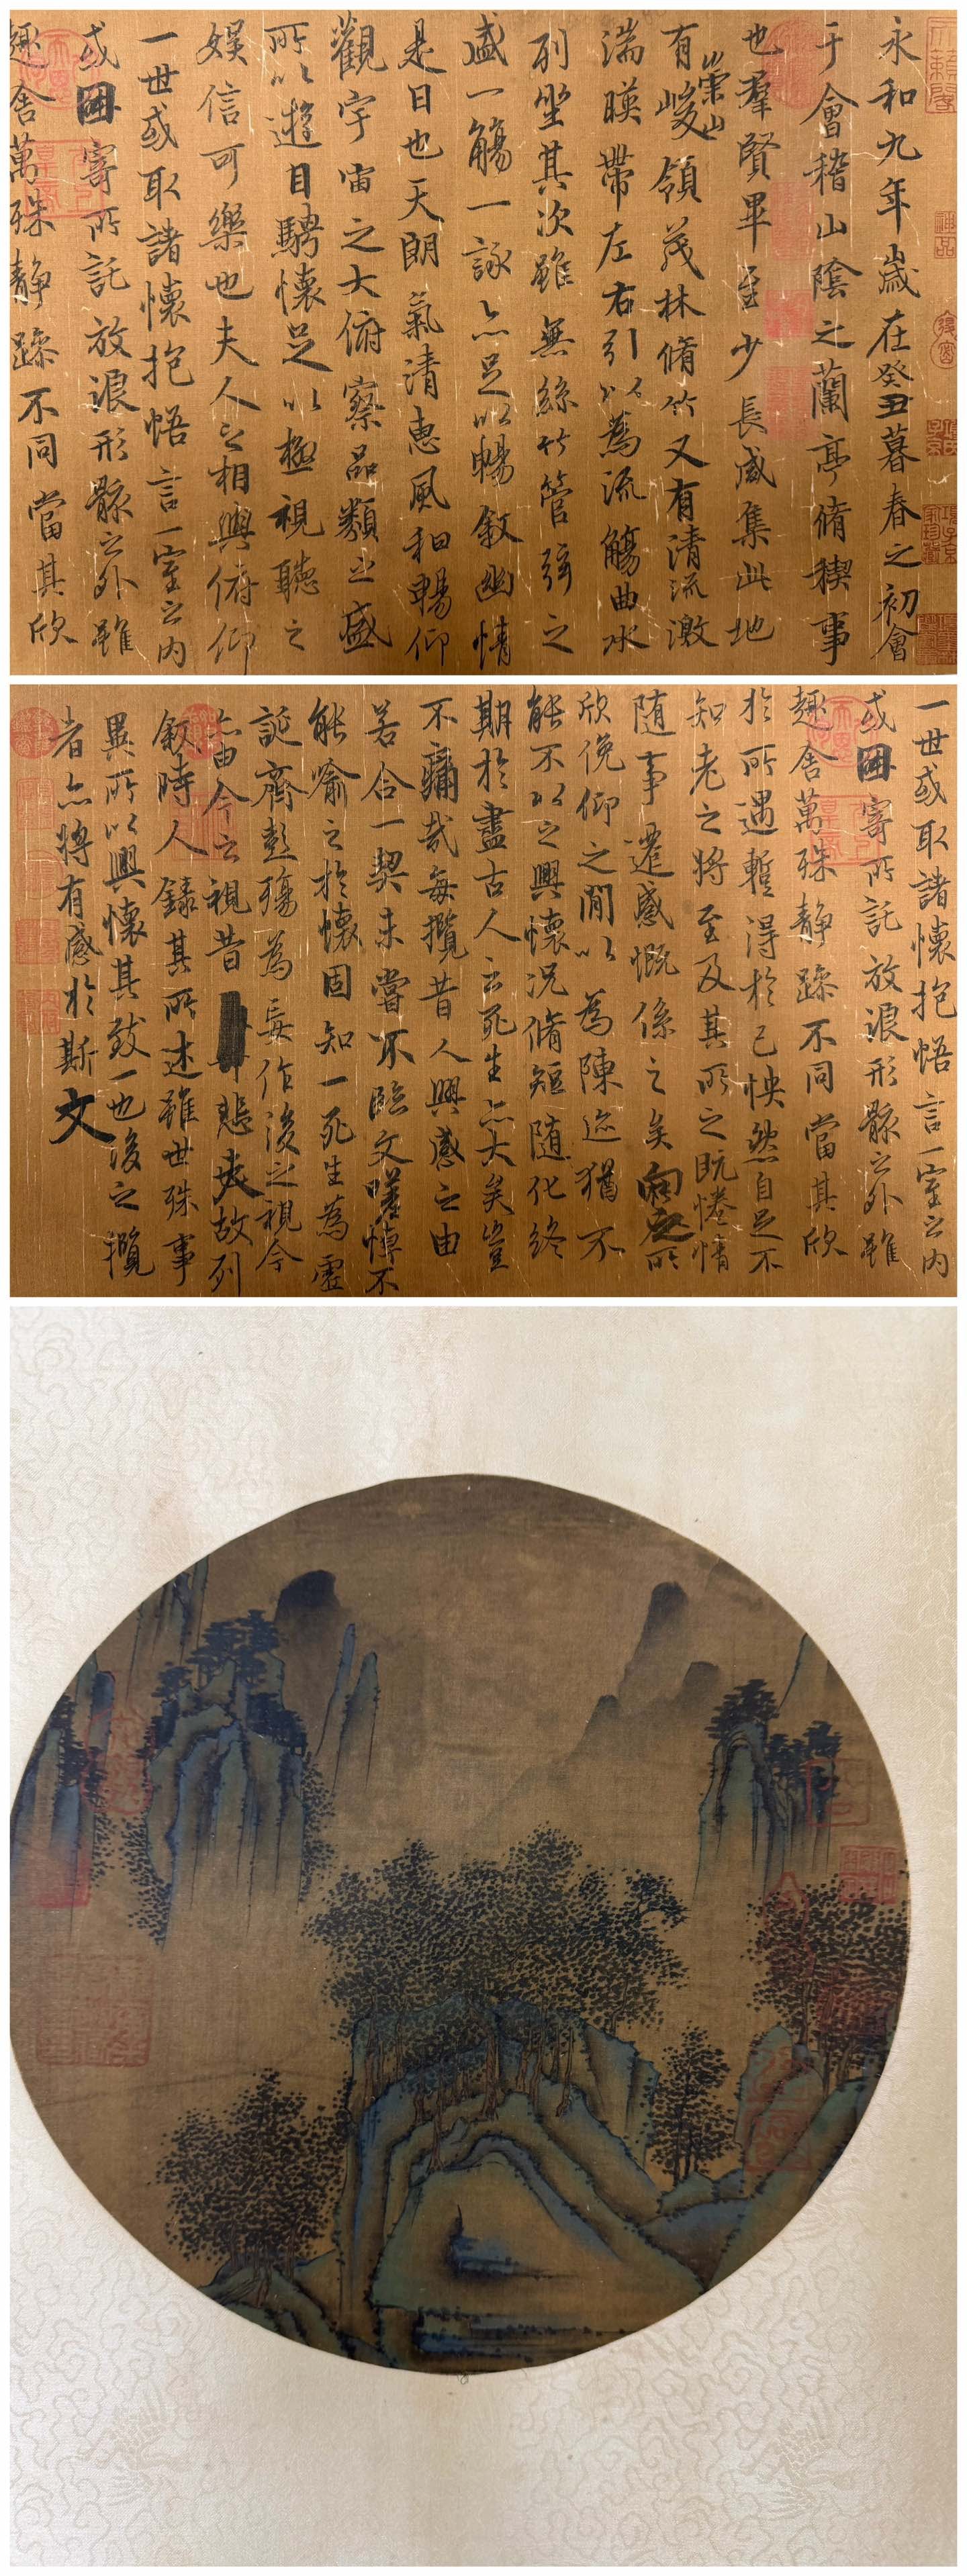 永和九年歲在癸丑暮春之初會
于會稽山陰之蘭亭脩稧事
也羣賢畢至少長咸集此地
有崇山峻領茂林脩竹又有清流激
湍暎帶左右引以為流觴曲水
列坐其次雖無絲竹管弦之
盛一觴一詠亦足以暢敘幽情
是日也天朗氣清惠風和暢仰
觀宇宙之大俯察品類之盛
所以遊目騁懷足以極視聽之
娛信可樂也夫人之相與俯仰
一世或取諸懷抱悟言一室之內
或因寄所託放浪形骸之外雖
趣舍萬殊靜躁不同當其欣
一世或取諸懷抱悟言一室之內
或因寄所託放浪形骸之外雖
趣舍萬殊靜躁不同當其欣
於所遇蹔得於己怏然自足不
知老之將至及其所之既惓情
隨事遷感慨係之矣向之所
欣俛仰之閒以為陳迹猶不
能不以之興懷況脩短隨化終
期於盡古人云死生亦大矣豈
不痛哉每攬昔人興感之由
若合一契未嘗不臨文嗟悼不
能喻之於懷固知一死生為虛
誕齊彭殤為妄作後之視今
亦由今之視昔悲夫故列
敘時人錄其所述雖世殊事
異所以興懷其致一也後之攬
者亦將有感於斯文
神品